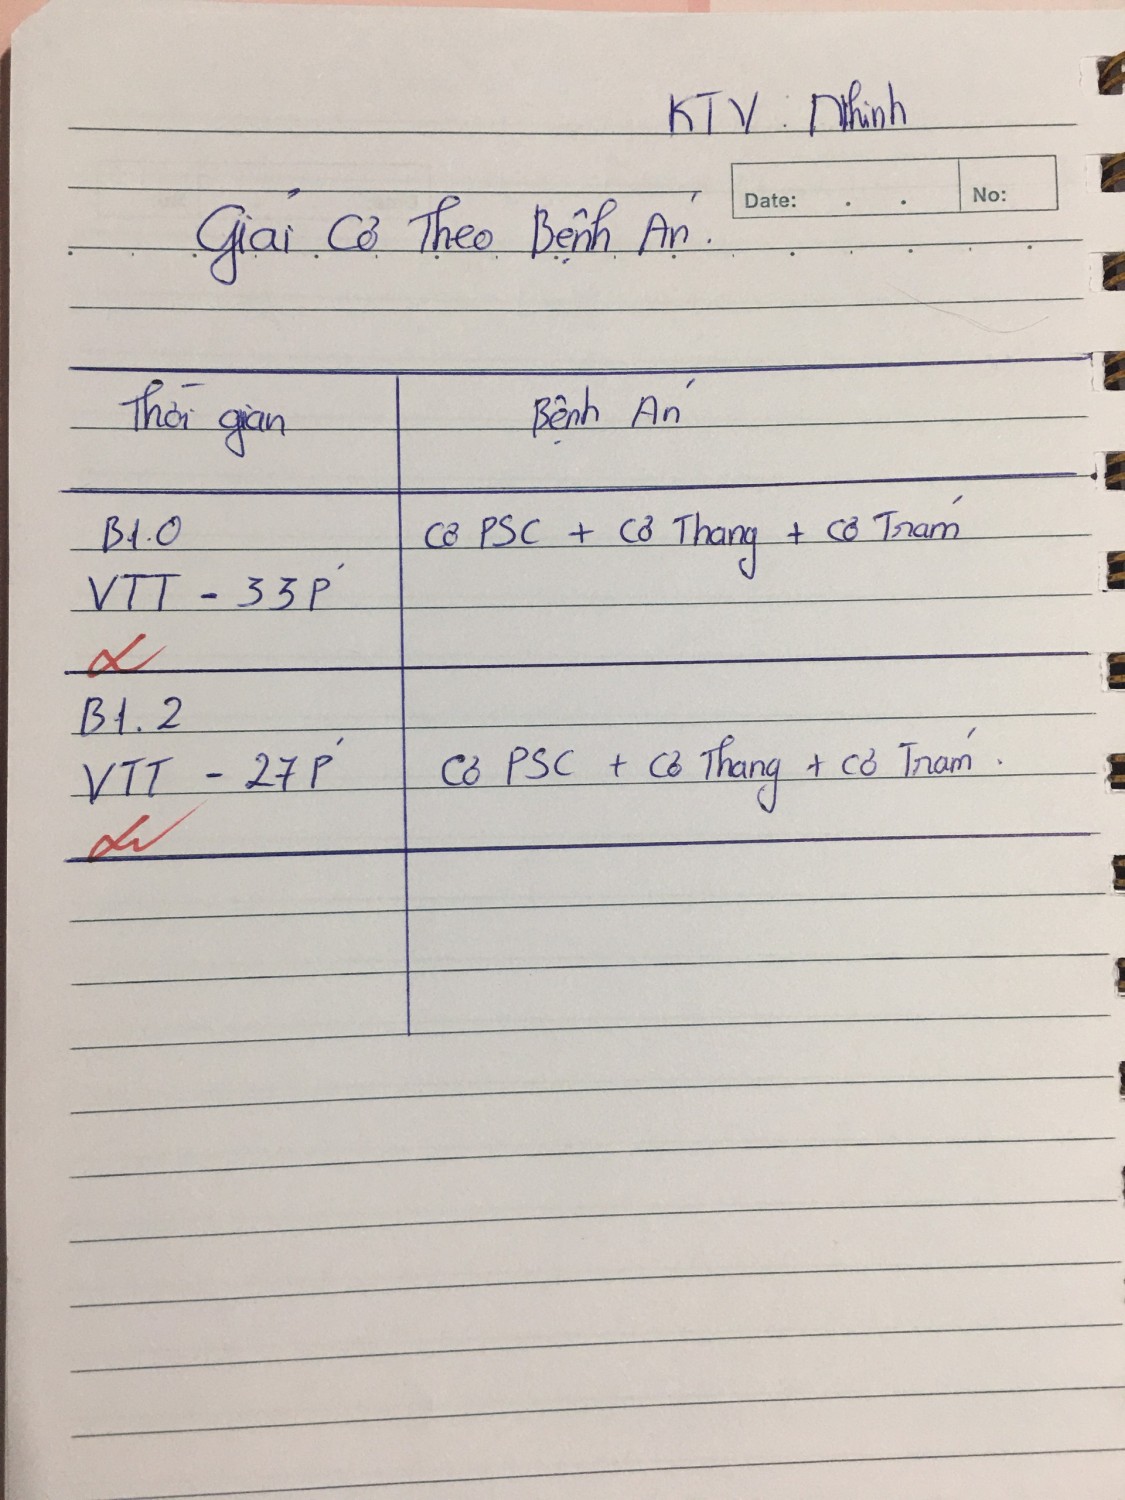 KTV : Nhinh
Date: . . No:
Giải Cơ Theo Bệnh Án.
Thời gian Bệnh Án
B1.0 Cơ PSC + Cơ Thang + Cơ Trám
VTT - 33 P'
B1.2
VTT - 27 P' Cơ PSC + Cơ Thang + Cơ Trám.